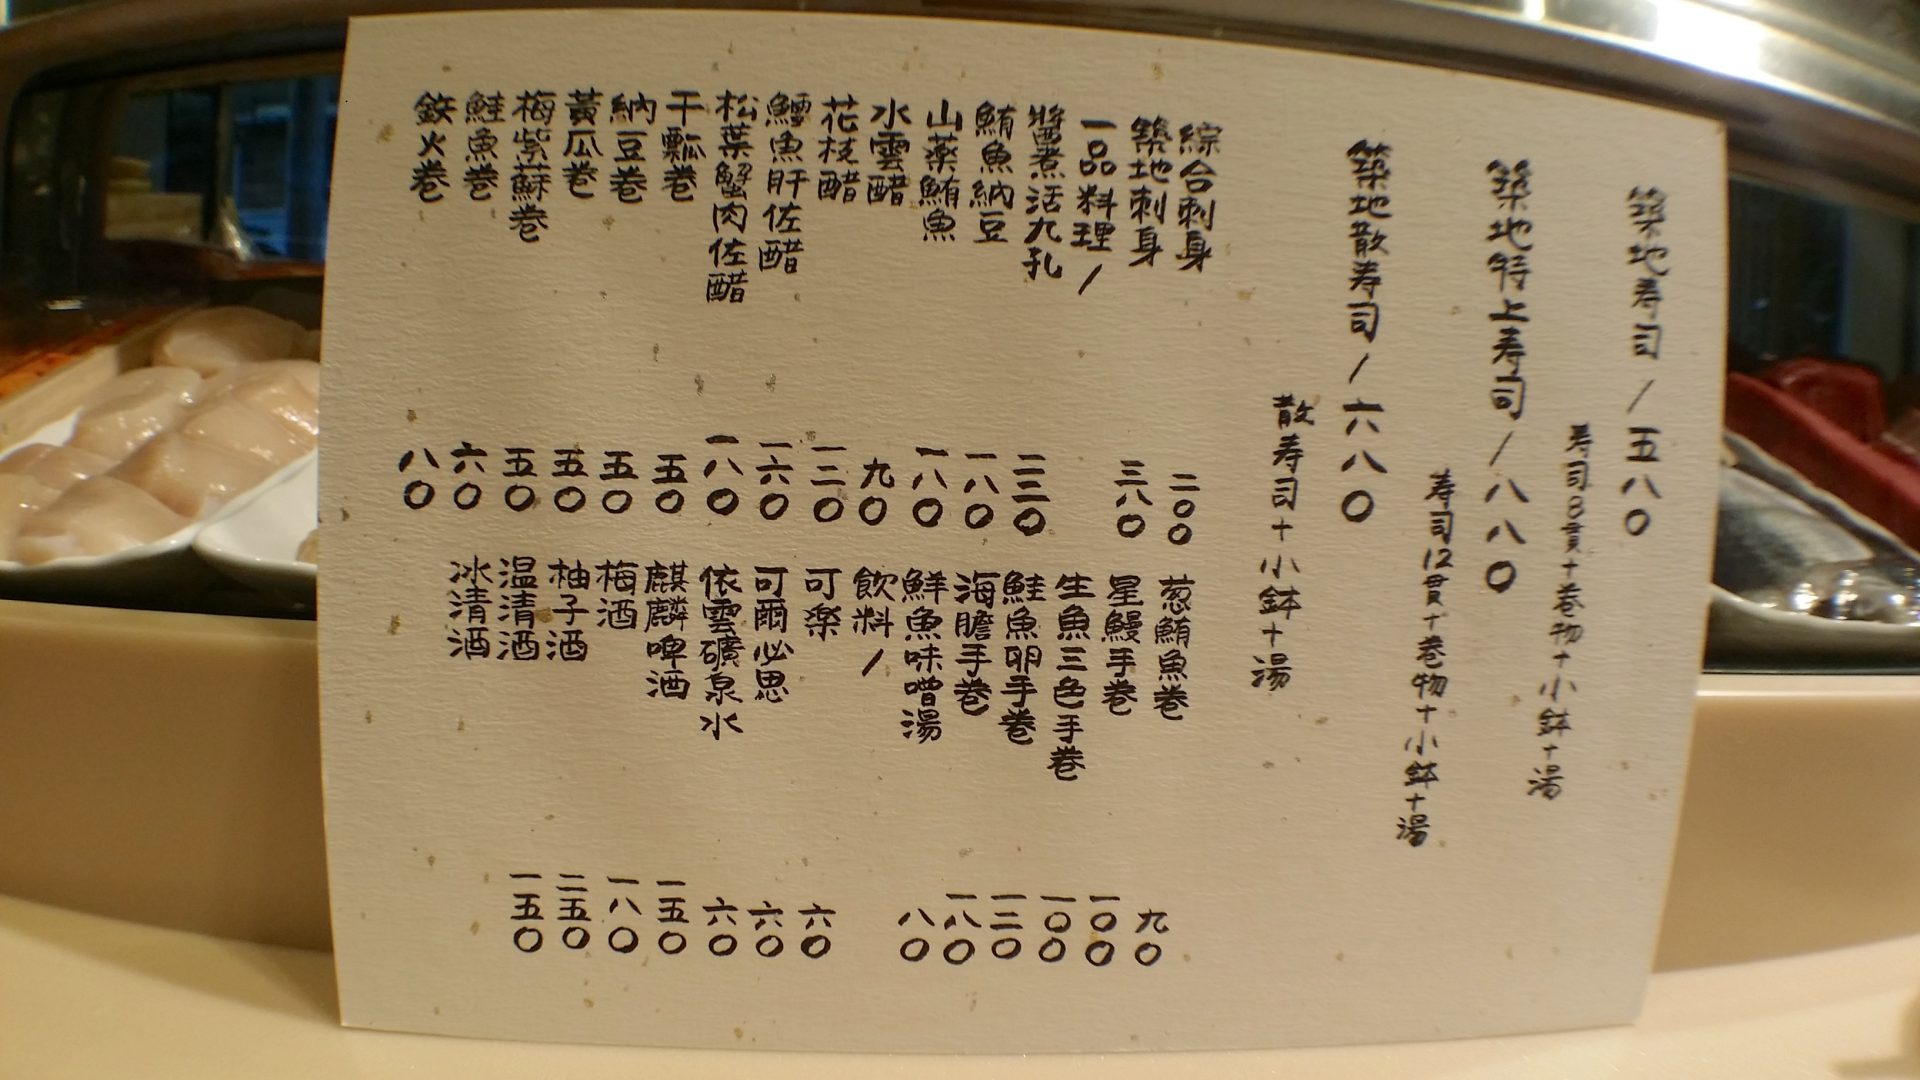 築地寿司/五八〇
寿司8貫+巻物+小鉢+湯
築地特上寿司/八八〇
寿司12貫+巻物+小鉢+湯
築地散寿司/六八〇
散寿司+小鉢+湯
綜合刺身 二〇〇
築地刺身 三八〇
一品料理/
醬煮活九孔
鮪魚納豆 一八〇
山藥鮪魚 一八〇
水雲醋 九〇
花枝醋 一二〇
鱈魚肝佐醋 一六〇
松葉蟹肉佐醋 一八〇
干瓢巻 五〇
納豆巻 五〇
黃瓜巻 五〇
梅紫蘇巻 五〇
鮭魚巻 六〇
鉄火巻 八〇
葱鮪魚巻 九〇
星鰻手巻 一〇〇
生魚三色手巻 一〇〇
鮭魚卵手巻 一二〇
海膽手巻 一八〇
鮮魚味噌湯 八〇
飲料/
可楽 六〇
可爾必思 六〇
依雲礦泉水 六〇
麒麟啤酒 一五〇
梅酒 一八〇
柚子酒 二五〇
温清酒 一五〇
冰清酒